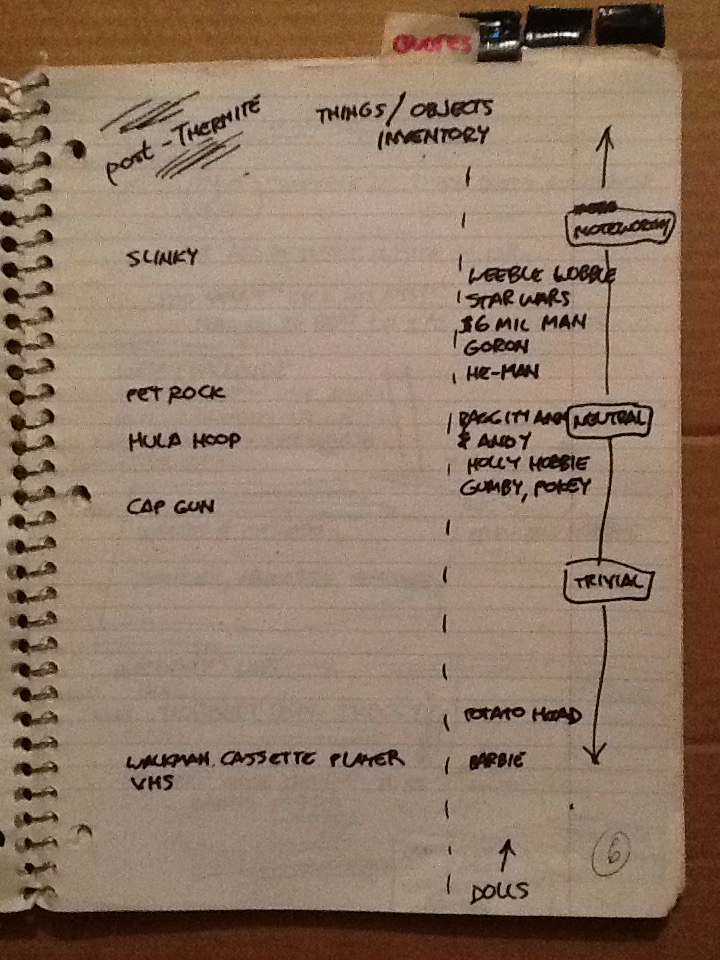 QUOTES
post-THERMITE
THINGS/OBJECTS
INVENTORY
NOTEWORTHY
SLINKY
WEEBLE WOBBLE
STAR WARS
$6 MIL MAN
GORON
HE-MAN
PET ROCK
RAGGITY ANN
NEUTRAL
HULA HOOP
& ANDY
HOLLY HOBBIE
GUMBY, POKEY
CAP GUN
TRIVIAL
POTATO HEAD
WALKMAN. CASSETTE PLAYER
BARBIE
VHS
6
DOLLS